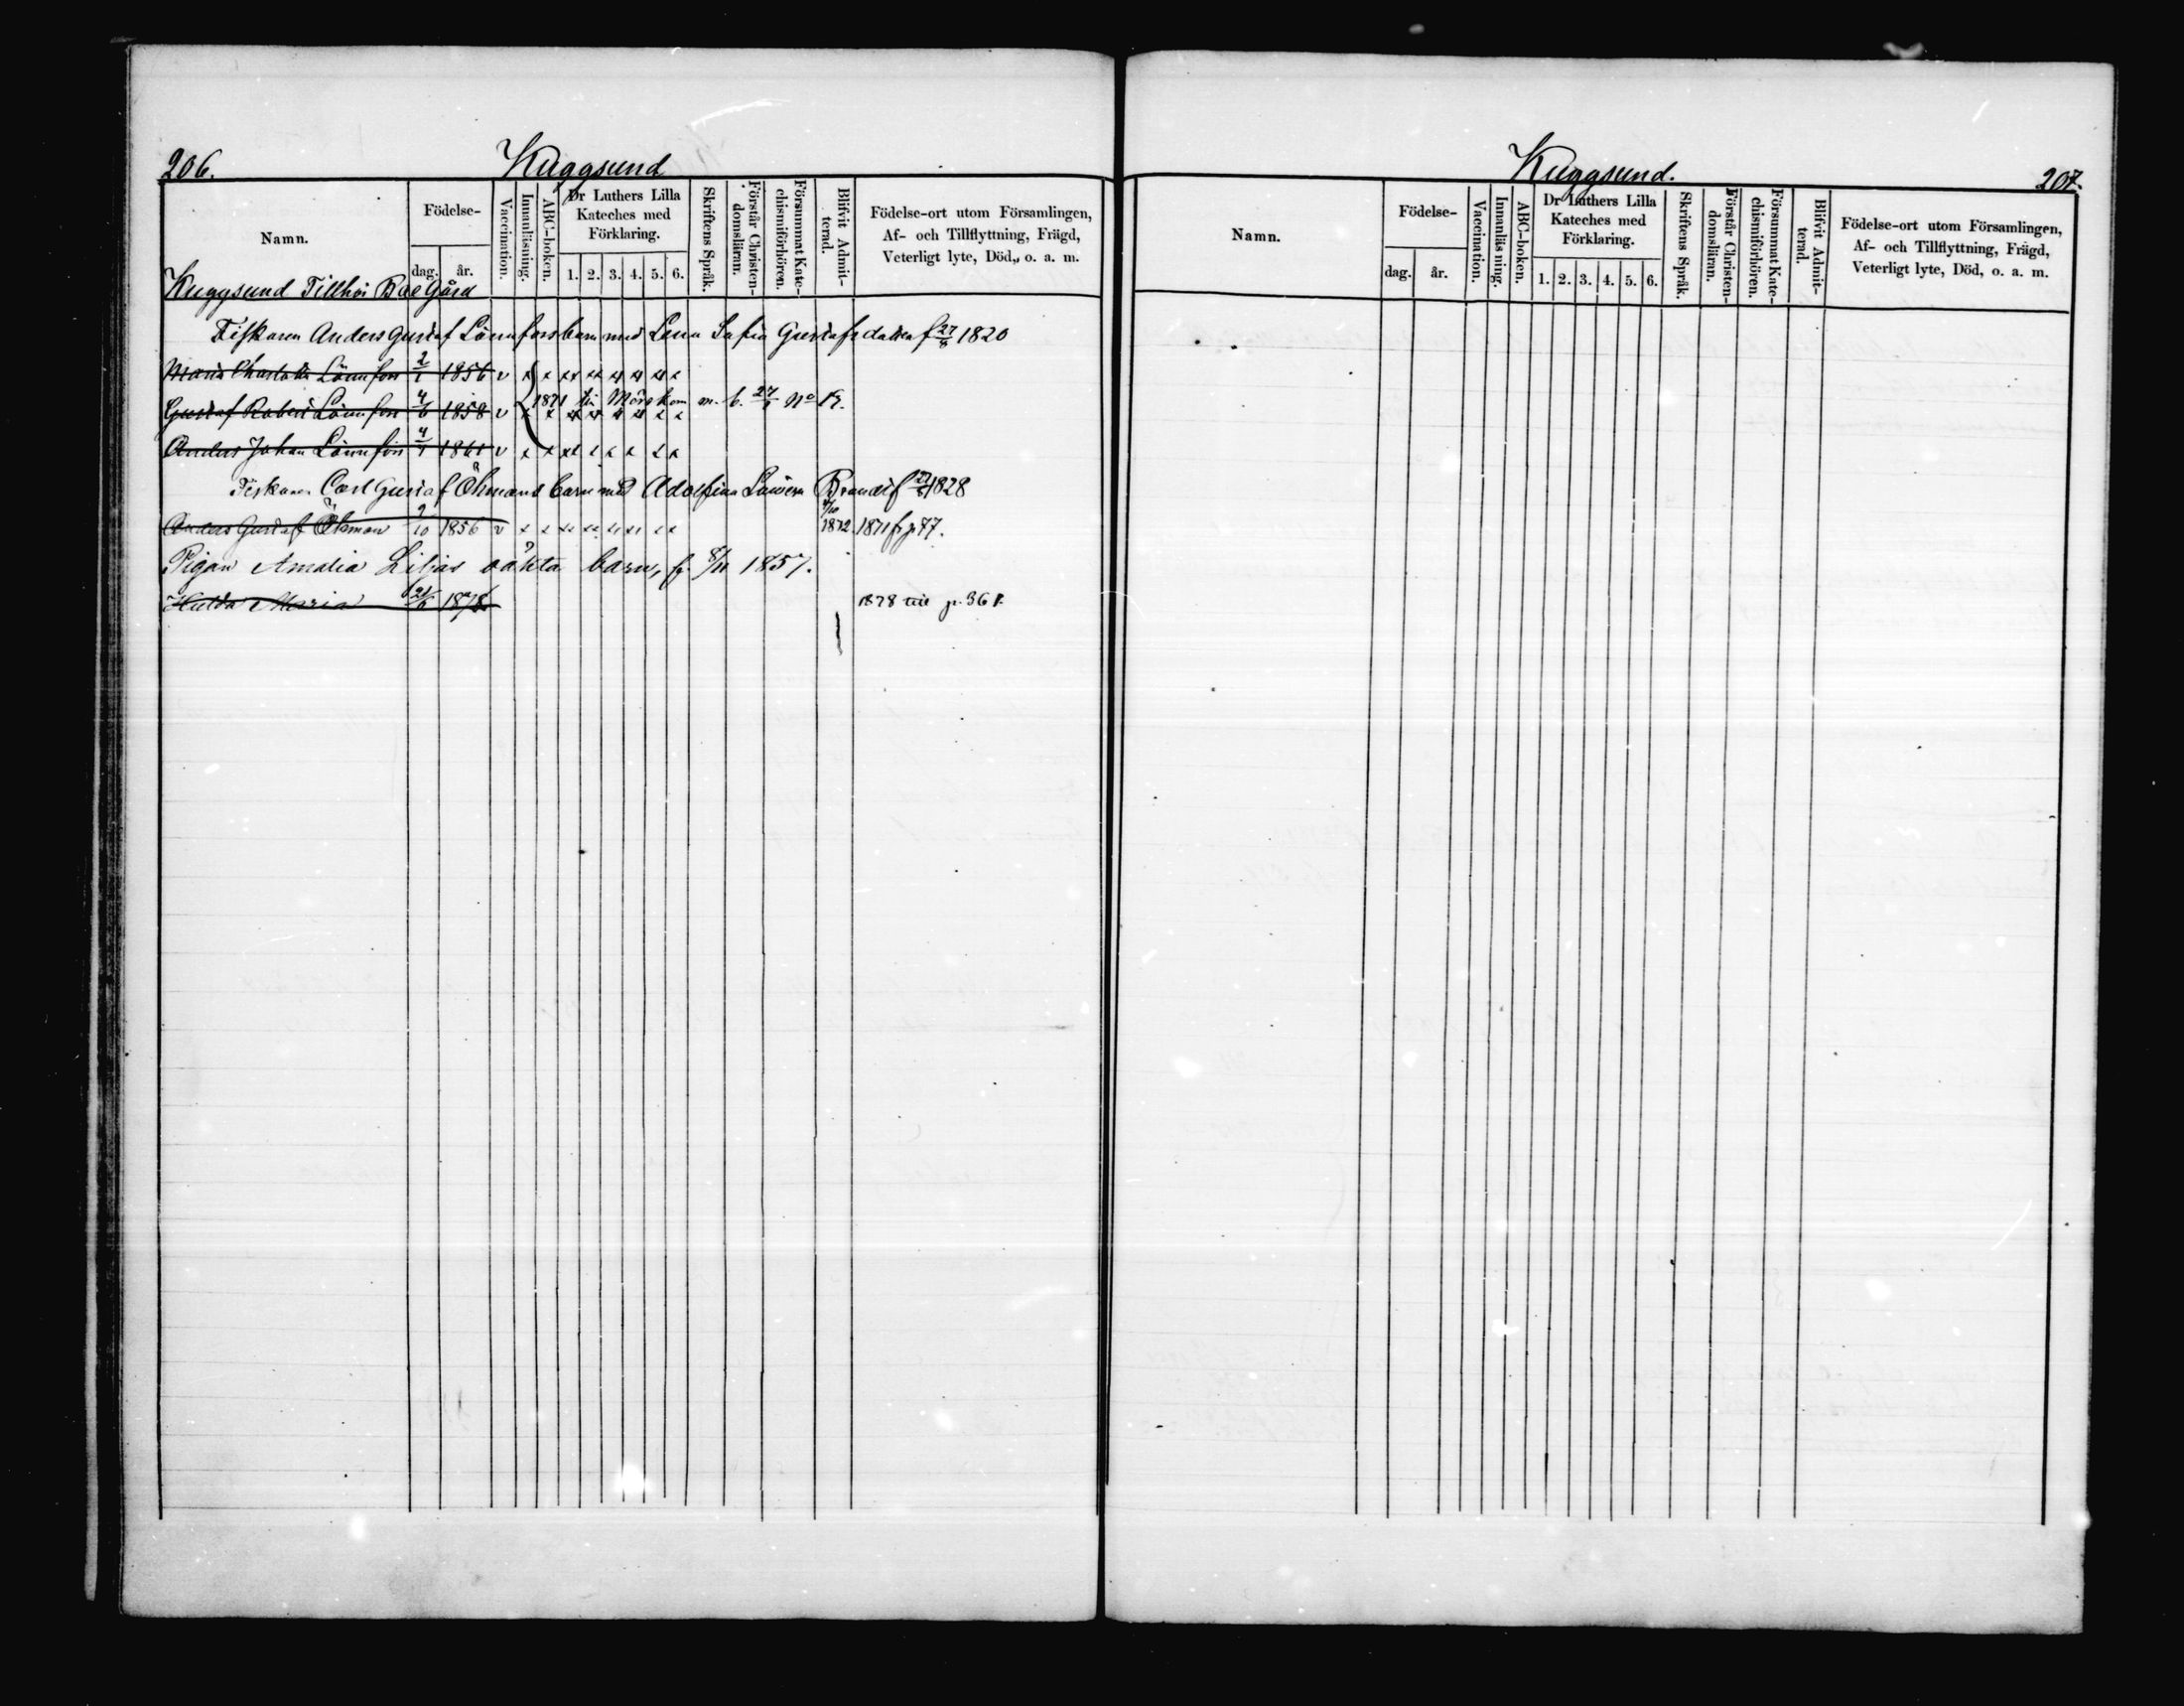 206. Kuggsund
Namn. Födelse- dag. år. Vaccination. Innanläsning. ABC-boken. Dr Luthers Lilla Kateches med Förklaring. 1. 2. 3. 4. 5. 6. Skriftens Språk. Förstår Christen-domsläran. Försummat Kate-chismiförhören. Blifvit Admit-terad. Födelse-ort utom Församlingen, Af- och Tillflyttning, Frägd, Veterligt lyte, Död, o. a. m.
Kuggsund Tillhör Boe Gård
Fiskaren Anders Gustaf Lönnfors barn med Lena Sofia Gustafsdotter f 27/8 1820
Maria Charlotta Lönnfors 2/1 1856 v x x xx xx xx xx xx x
1871 till Mörskom m. b. 27/1 No 19.
Gustaf Robert Lönnfors 4/6 1858 v x x xx xx x x x x
Anders Johan Lönnfors 4/1 1861 v x x xx x x x x x
Fiskaren Carl Gustaf Öhmans barn med Adolfina Lovisa Brandt f 1828
Anders Gustaf Öhman 9/10 1856 v x x xx xx xx xx x x 1872. 1871 fr p 77.
Pigan Amalia Liljas oäkta barn, f. 8/11 1857.
Hulda Maria 21/6 1878 1878 till p. 361.
Kuggsund. 207.
Namn. Födelse- dag. år. Vaccination. Innanläsning. ABC-boken. Dr Luthers Lilla Kateches med Förklaring. 1. 2. 3. 4. 5. 6. Skriftens Språk. Förstår Christen-domsläran. Försummat Kate-chismiförhören. Blifvit Admit-terad. Födelse-ort utom Församlingen, Af- och Tillflyttning, Frägd, Veterligt lyte, Död, o. a. m.